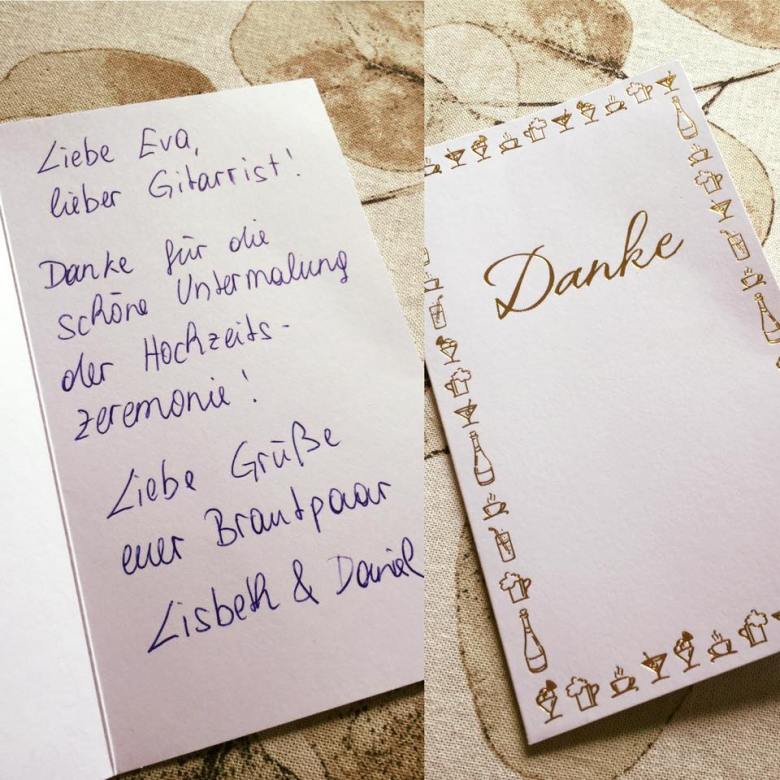 Liebe Eva,
lieber Gitarrist!
Danke für die
schöne Untermalung
der Hochzeits-
zeremonie!
Liebe Grüße
euer Brautpaar
Lisbeth & Daniel
Danke